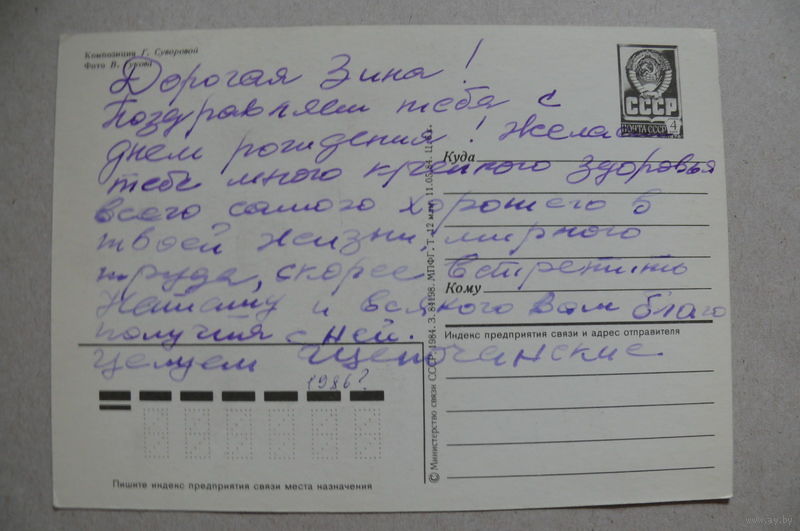 Композиция Г. Суворовой
Фото В. Гукова
Дорогая Зина!
Поздравляем тебя с
днем рождения! Желаем
тебе много крепкого здоровья
всего самого хорошего в
твоей жизни, мирного
труда, скорее встретить
Наташу и всякого вам благо
получия с ней.
Целуем
1986?
СССР
ПОЧТА СССР 4
Куда
Кому
Индекс предприятия связи и адрес отправителя
© Министерство связи СССР, 1984. З. 84198. МПФГ. Т. 12 млн. 11.05.84. Ц.
Пишите индекс предприятия связи места назначения
www.ay.by